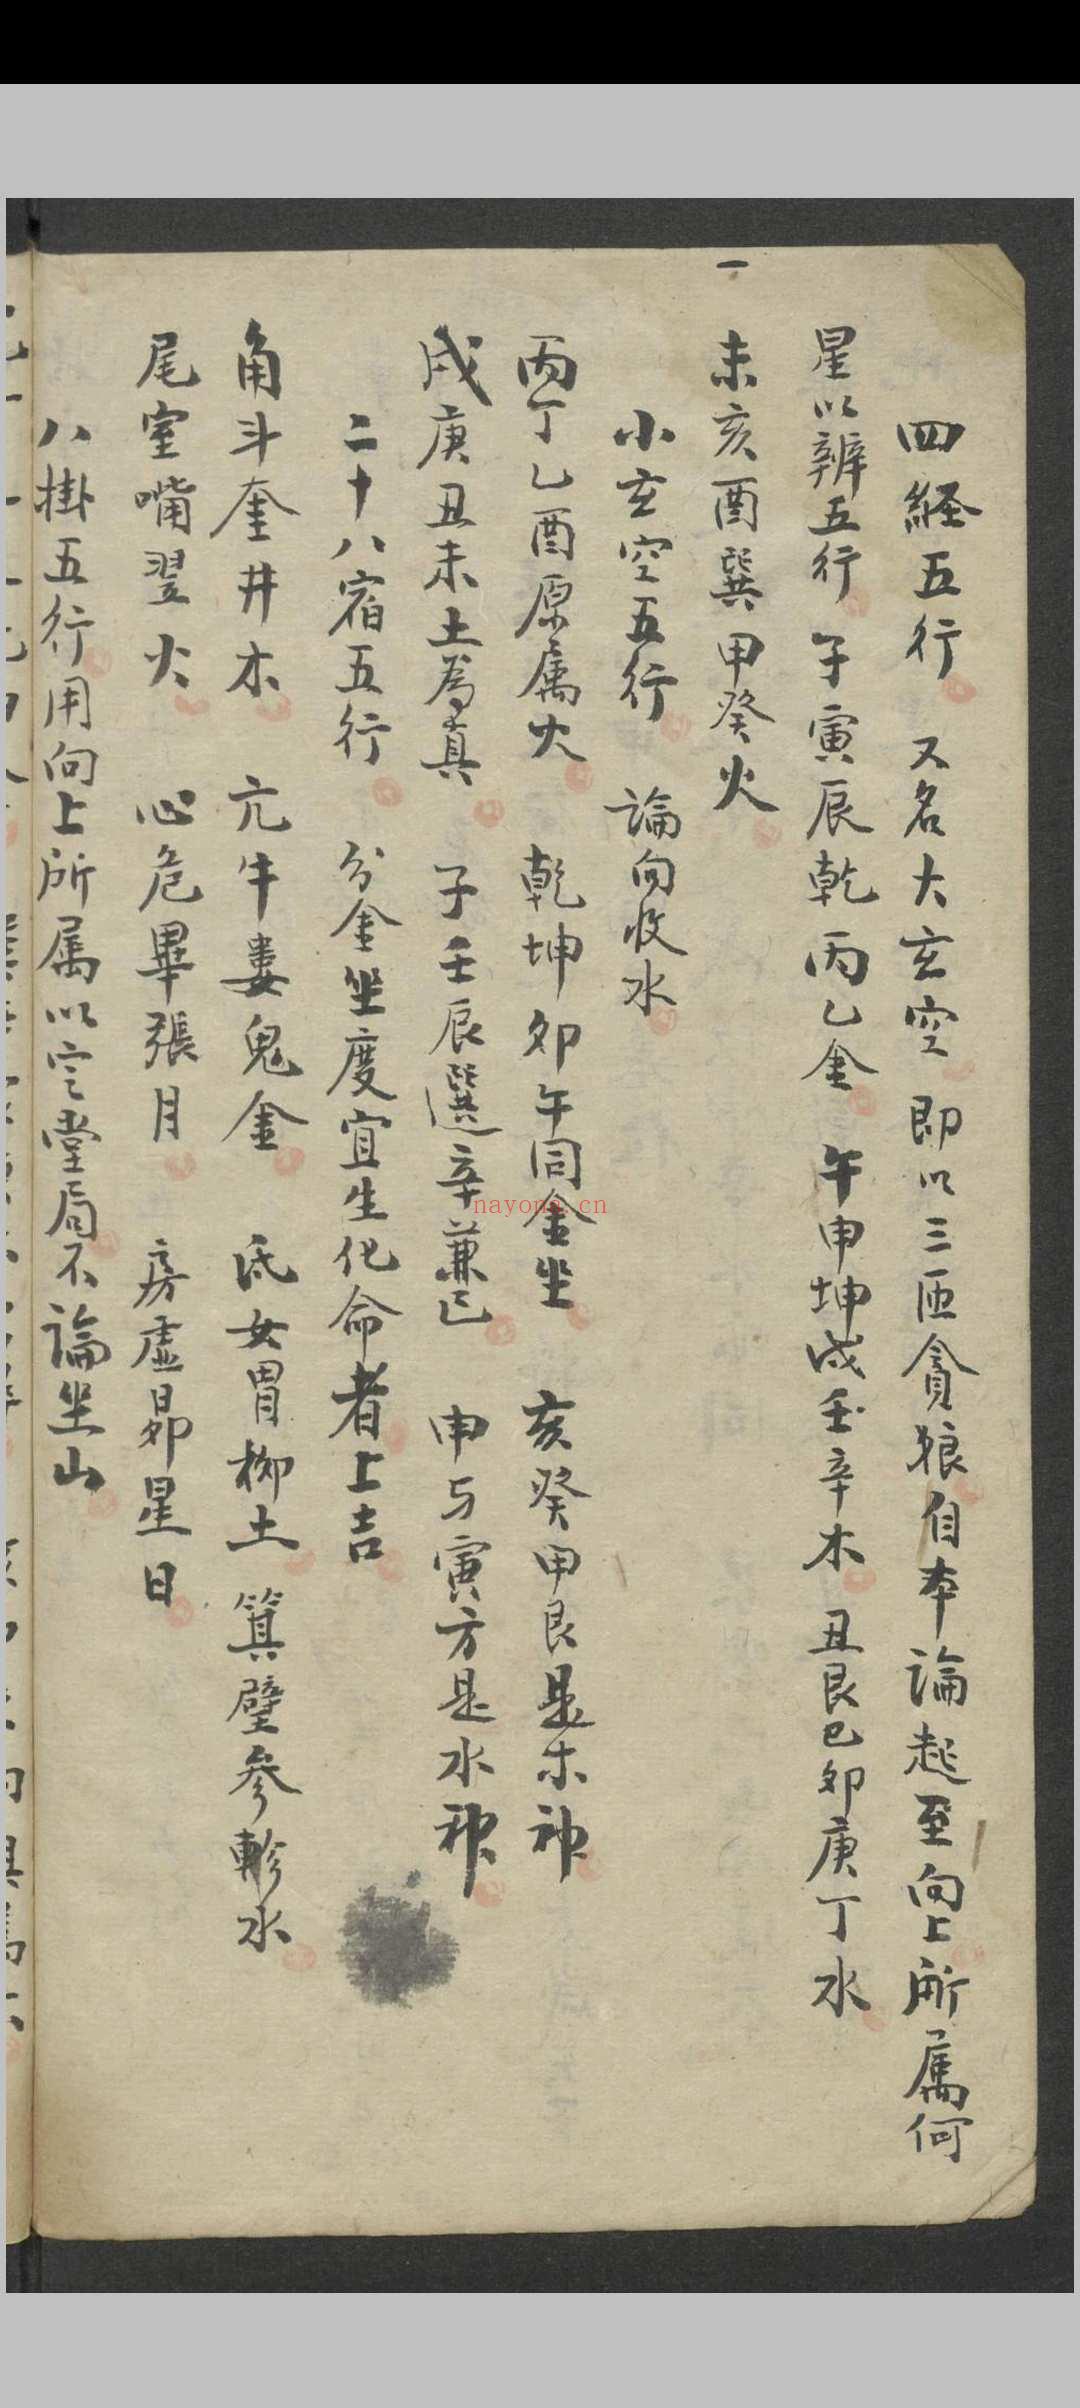 四経五行 又名大玄空 即以三匝貪狼自本論起至向上所属何
星以辨五行 子寅辰乾丙乙金 午申坤戌壬辛木 丑艮巳卯庚丁水
未亥酉巽甲癸火
小玄空五行 論向收水
丙丁乙酉原属火 乾坤卯午同金坐 亥癸甲艮是木神
戌庚丑未土為真 子壬辰選辛兼巳 申与寅方是水神
二十八宿五行 分金坐度宜生化命者上吉
角斗奎井木 亢牛婁鬼金 氐女胃柳土 箕壁參軫水
尾室嘴翌火 心危畢張月 房虛昴星日
八掛五行用向上所属以定堂局不論坐山
nayona.cn